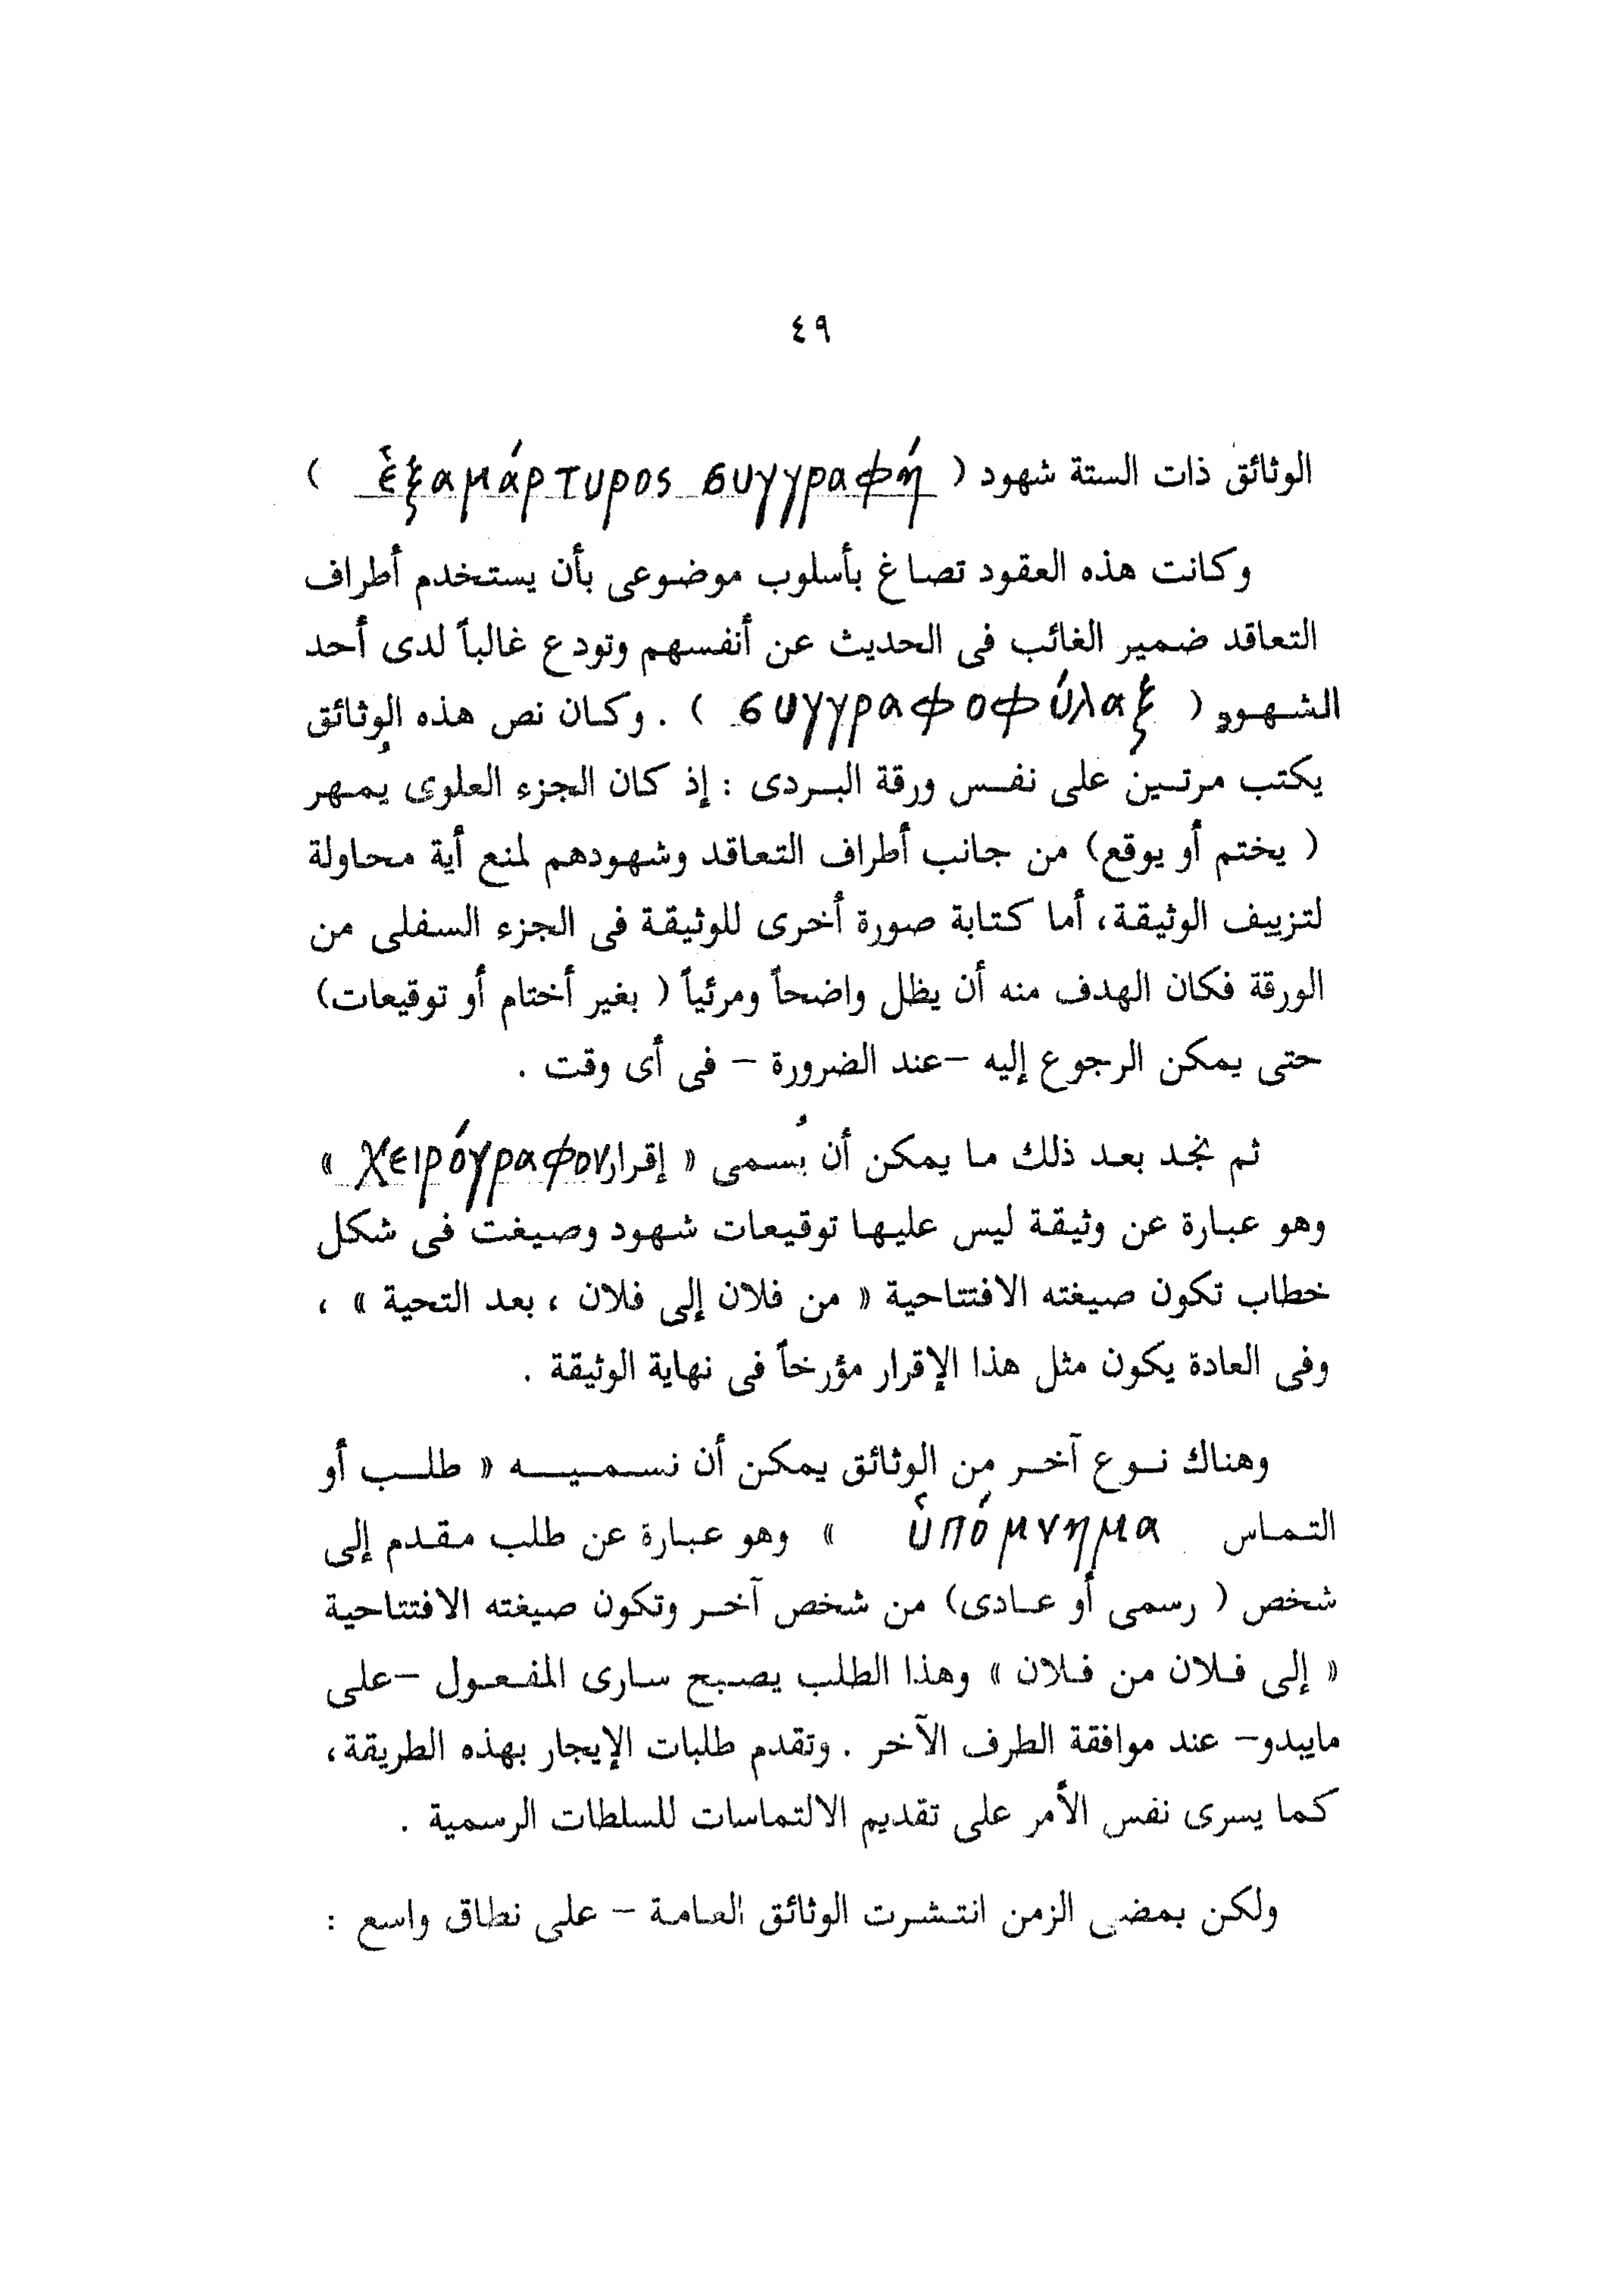 ٤٩
الوثائق ذات الستة شهود ( ἑξαμάρτυρος συγγραφή )
وكانت هذه العقود تصاغ بأسلوب موضوعى بأن يستخدم أطراف
التعاقد ضمير الغائب فى الحديث عن أنفسهم وتودع غالباً لدى أحد
الشهود ( συγγραφοφύλαξ ) . وكان نص هذه الوثائق
يكتب مرتين على نفس ورقة البردى : إذ كان الجزء العلوى يُمهر
( يختم أو يوقع) من جانب أطراف التعاقد وشهودهم لمنع أية محاولة
لتزييف الوثيقة، أما كتابة صورة أخرى للوثيقة فى الجزء السفلى من
الورقة فكان الهدف منه أن يظل واضحاً ومرئياً ( بغير أختام أو توقيعات)
حتى يمكن الرجوع إليه –عند الضرورة – فى أى وقت .
ثم نجد بعد ذلك ما يمكن أن يُسمى « إقرار χειρόγραφον »
وهو عبارة عن وثيقة ليس عليها توقيعات شهود وصيغت فى شكل
خطاب تكون صيغته الافتتاحية « من فلان إلى فلان ، بعد التحية » ،
وفى العادة يكون مثل هذا الإقرار مؤرخاً فى نهاية الوثيقة .
وهناك نوع آخر من الوثائق يمكن أن نسميه « طلب أو
التماس ὑπόμνημα » وهو عبارة عن طلب مقدم إلى
شخص ( رسمى أو عادى) من شخص آخر وتكون صيغته الافتتاحية
« إلى فلان من فلان » وهذا الطلب يصبح سارى المفعول –على
مايبدو– عند موافقة الطرف الآخر . وتقدم طلبات الإيجار بهذه الطريقة،
كما يسرى نفس الأمر على تقديم الالتماسات للسلطات الرسمية .
ولكن بمضى الزمن انتشرت الوثائق العامة – على نطاق واسع :